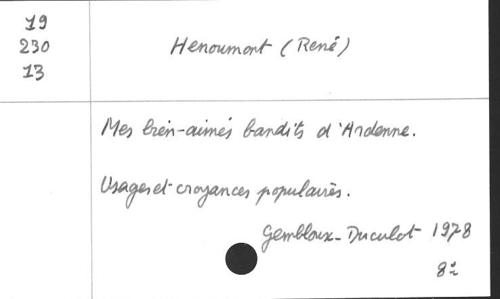 19
230
13
Henoumont (René)
Mes bien-aimés bandits d'Ardenne.
Usages et croyances populaires.
Gembloux - Duculot 1978
8º